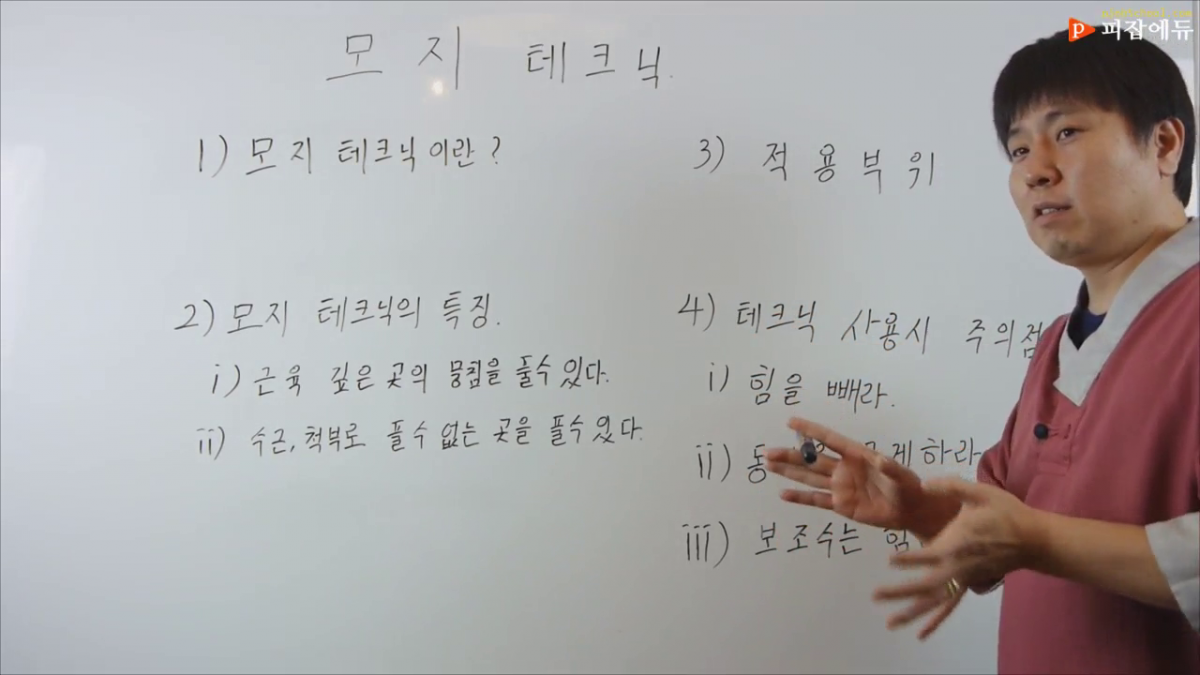 피잡에듀
모지 테크닉.
1) 모지 테크닉이란?
2) 모지 테크닉의 특징.
i) 근육 깊은 곳의 뭉침을 풀수 있다.
ii) 수근, 척부로 풀수 없는 곳을 풀수 있다.
3) 적용부위
4) 테크닉 사용시 주의점
i) 힘을 빼라.
ii) 게하라
iii) 보조수는 힘